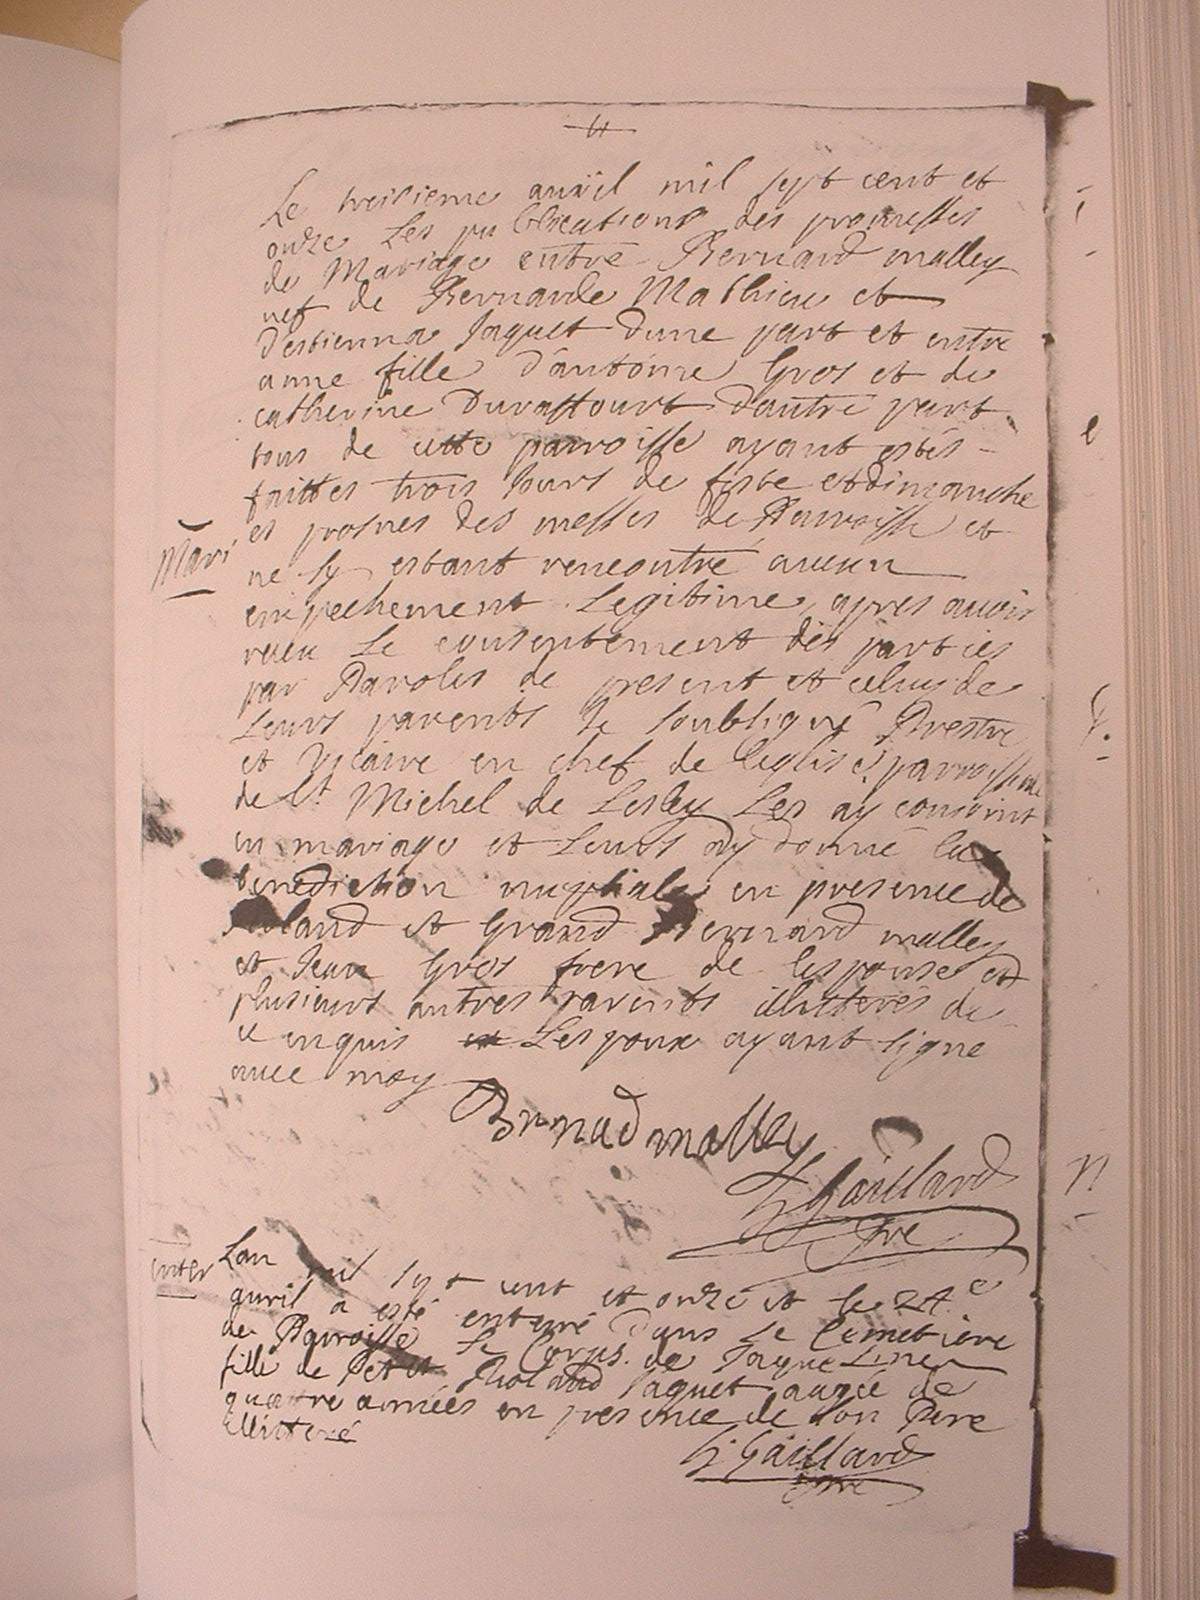 Le treisieme auril mil sept cent et
onze Les publications des promesses
de Mariage entre Bernard malley
nef de Bernarde Mathieu et
d'estienna Jaquet dune part et entre
anne fille d'antoine Gros et de
catherine Duraffourt dautre part
tous de cette parroisse ayant estés
faittes trois Jours de feste et dimanche
es prosnes des messes de Parroisse et
ne sy estant rencontré aucun
Mari
empechement Legitime, apres auoir
receu Le consentement des parties
par Paroles de present et celuy de
Leurs parents Je soubsigné Prestre
et Vicaire en chef de leglise parroissiale
de St Michel de Lesley Les ay conjoint
en mariage et Leurs ay donné la
benediction nuptiale en presence de
Roland et Grand Bernard malley
et Jean Gros frere de lespouse et
plusieurs autres parents illitterés de
ce enquis Lespoux ayant signe
auec moy
Bernad malley
Gaillard
pre
enter
Lan mil sept cent et onze et le 24e
auril a esté enterré dans Le Cimetiere
de Parroisse Le Corps de Jaqueline
fille de Petit Roland Jaquet augée de
quattre années en presence de son Pere
illitteré
Gaillard
pre